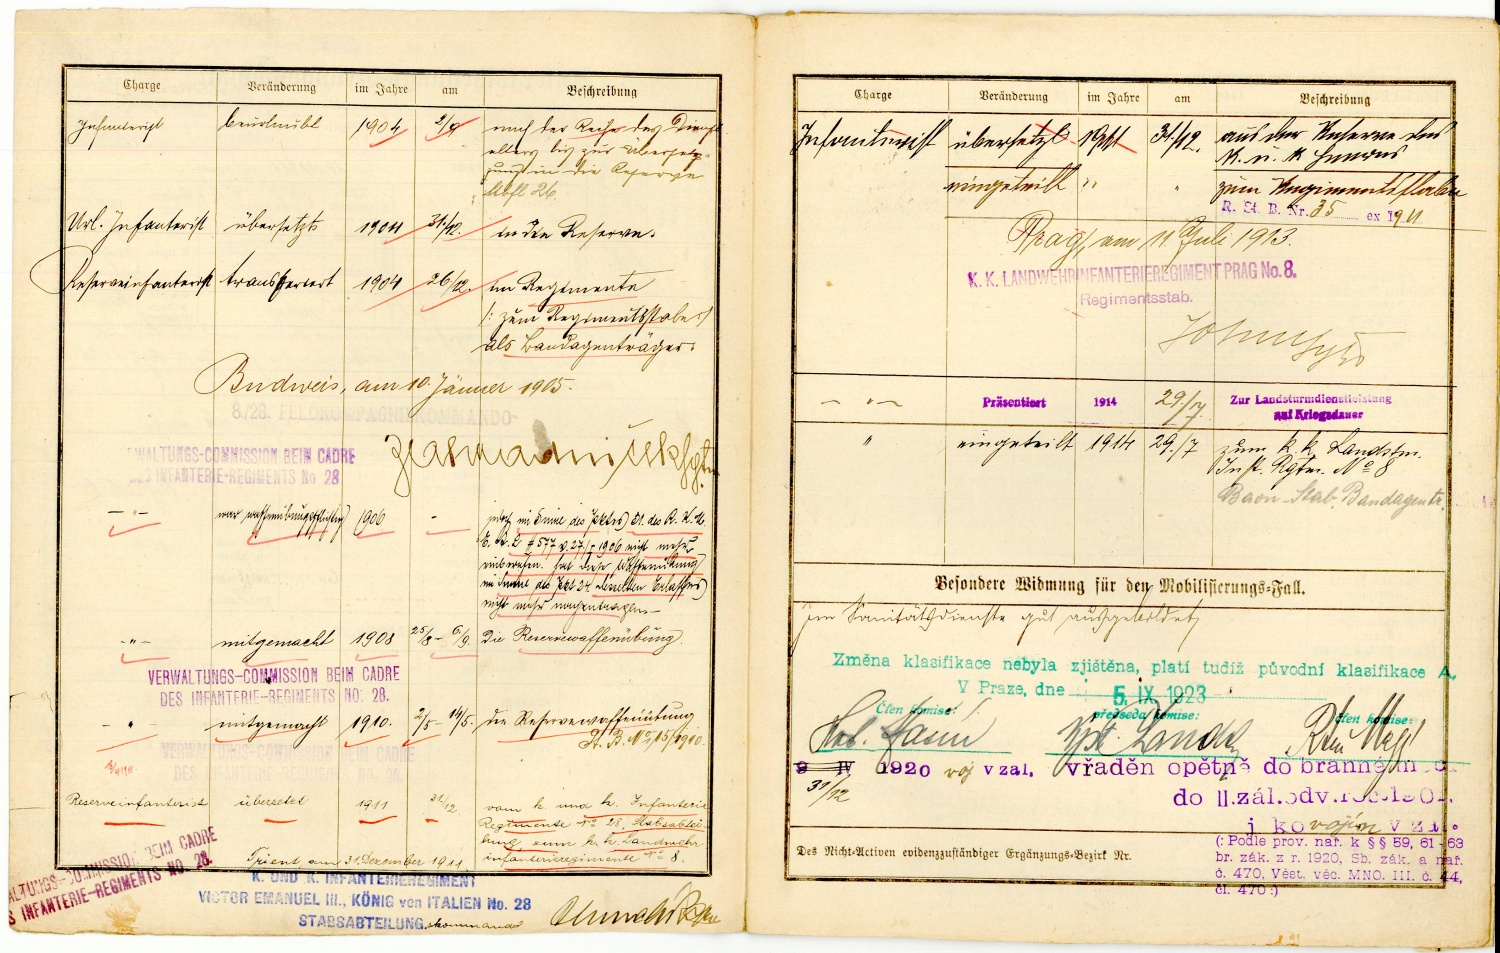 Charge Veränderung im Jahre am Beschreibung
Infanterist beurlaubt 1904 2/9 nach der Reihe des Dienst-
alters bis zur Überset-
zung in die Reserve
Url. Infanterist übersetzt 1904 31./12. in die Reserve.
Reserveinfanterist transferiert 1904 26/12. im Regimente
/: zum Regimentsstabe :/
als Bandagenträger.
Budweis, am 10. Jänner 1905.
8/28. FELDKOMPAGNIEKOMMANDO
WALTUNGS-COMMISSION BEIM CADRE
DES INFANTERIE-REGIMENTS No 28
— " — war waffenübungspflichtig 1906 —
§ 577 v. 27/ 1906 nicht mehr
einberufen. hat diese Waffenübung
im Sinne des Pkt 24 desselben Erlasses
nicht mehr nachzutragen.
— " — mitgemacht 1908 25/8 – 6/9. Die Reservewaffenübung.
VERWALTUNGS-COMMISSION BEIM CADRE
DES INFANTERIE-REGIMENTS NO. 28.
" mitgemacht 1910. 2/5 – 14/5. die Reservewaffenübung
VERWALTUNGS-COMMISSION BEIM CADRE
DES INFANTERIE-REGIMENTS NO. 28.
Reserveinfanterist übersetzt 1911 31/12 vom k. und k. Infanterie
Regimente No 28, Stabsabtei-
lung zum k. k. Landwehr
infanterieregimente No 8.
Trient, am 31. Dezember 1911
WALTUNGS-COMMISSION BEIM CADRE
S INFANTERIE-REGIMENTS NO. 28.
K. UND K. INFANTERIEREGIMENT
VICTOR EMANUEL III., KÖNIG von ITALIEN No. 28
STABSABTEILUNG.skommando
Charge Veränderung im Jahre am Beschreibung
Infanterist übersetzt 1911 31./12. aus der Reserve des
k. u. k Heeres
eingeteilt " " zum Regimentsstabe
R. St. B. Nr. 35 ex 1911
Prag, am 11. Juli 1913.
K. K. LANDWEHRINFANTERIEREGIMENT PRAG No. 8.
Regimentsstab.
— " — Präsentiert 1914 29/7. Zur Landsturmdienstleistung
auf Kriegsdauer
" eingeteilt 1914 29./7 zum k. k. Landstm.
Inft. Rgtm. No 8
Baon-Stab. Bandagentr.
Besondere Widmung für den Mobilisierungs-Fall.
Im Sanitätsdienste gut ausgebildet
Změna klasifikace nebyla zjištěna, platí tudíž původní klasifikace A,
V Praze, dne 5. IX 1923
Člen komise: předseda komise: člen komise:
9 IV 1920 voj v zal. vřaděn opětně do branné moci
31/12
do II.zál.odv.roč.190
j ko vojín v zál.
(: Podle prov. nař. k §§ 59, 61-63
br. zák. z r. 1920, Sb. zák. a nař.
č. 470, Věst. věc. MNO. III. č. 44,
čl. 470 :)
Des Nicht-Activen evidenzzuständiger Ergänzungs-Bezirk Nr.